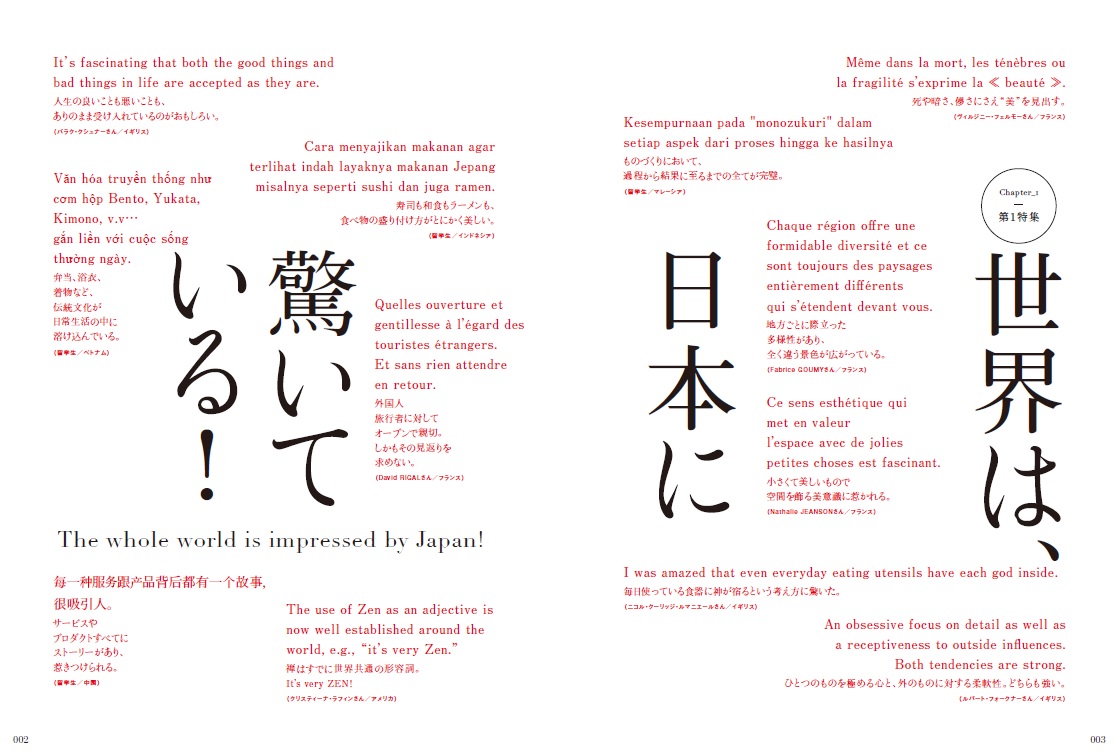 Chapter_1
第1特集
世界は、
日本に
驚いて
いる！
The whole world is impressed by Japan!
Même dans la mort, les ténèbres ou
la fragilité s'exprime la ≪ beauté ≫.
死や暗さ、儚さにさえ“美”を見出す。
（ヴィルジニー・フェルモーさん／フランス）
Kesempurnaan pada "monozukuri" dalam
setiap aspek dari proses hingga ke hasilnya
ものづくりにおいて、
過程から結果に至るまでの全てが完璧。
（留学生／マレーシア）
Chaque région offre une
formidable diversité et ce
sont toujours des paysages
entièrement différents
qui s'étendent devant vous.
地方ごとに際立った
多様性があり、
全く違う景色が広がっている。
（Fabrice GOUMYさん／フランス）
Ce sens esthétique qui
met en valeur
l'espace avec de jolies
petites choses est fascinant.
小さくて美しいもので
空間を飾る美意識に惹かれる。
（Nathalie JEANSONさん／フランス）
I was amazed that even everyday eating utensils have each god inside.
毎日使っている食器に神が宿るという考え方に驚いた。
（ニコル・クーリッジ・ルマニエールさん／イギリス）
An obsessive focus on detail as well as
a receptiveness to outside influences.
Both tendencies are strong.
ひとつのものを極める心と、外のものに対する柔軟性。どちらも強い。
（ルパート・フォークナーさん／イギリス）
003
It's fascinating that both the good things and
bad things in life are accepted as they are.
人生の良いことも悪いことも、
ありのまま受け入れているのがおもしろい。
（バラク・クシュナーさん／イギリス）
Cara menyajikan makanan agar
terlihat indah layaknya makanan Jepang
misalnya seperti sushi dan juga ramen.
寿司も和食もラーメンも、
食べ物の盛り付け方がとにかく美しい。
（留学生／インドネシア）
Văn hóa truyền thống như
cơm hộp Bento, Yukata,
Kimono, v.v…
gắn liền với cuộc sống
thường ngày.
弁当、浴衣、
着物など、
伝統文化が
日常生活の中に
溶け込んでいる。
（留学生／ベトナム）
Quelles ouverture et
gentillesse à l'égard des
touristes étrangers.
Et sans rien attendre
en retour.
外国人
旅行者に対して
オープンで親切。
しかもその見返りを
求めない。
（David RIGALさん／フランス）
每一种服务跟产品背后都有一个故事,
很吸引人。
サービスや
プロダクトすべてに
ストーリーがあり、
惹きつけられる。
（留学生／中国）
The use of Zen as an adjective is
now well established around the
world, e.g., “it's very Zen.”
禅はすでに世界共通の形容詞。
It's very ZEN!
（クリスティーナ・ラフィンさん／アメリカ）
002